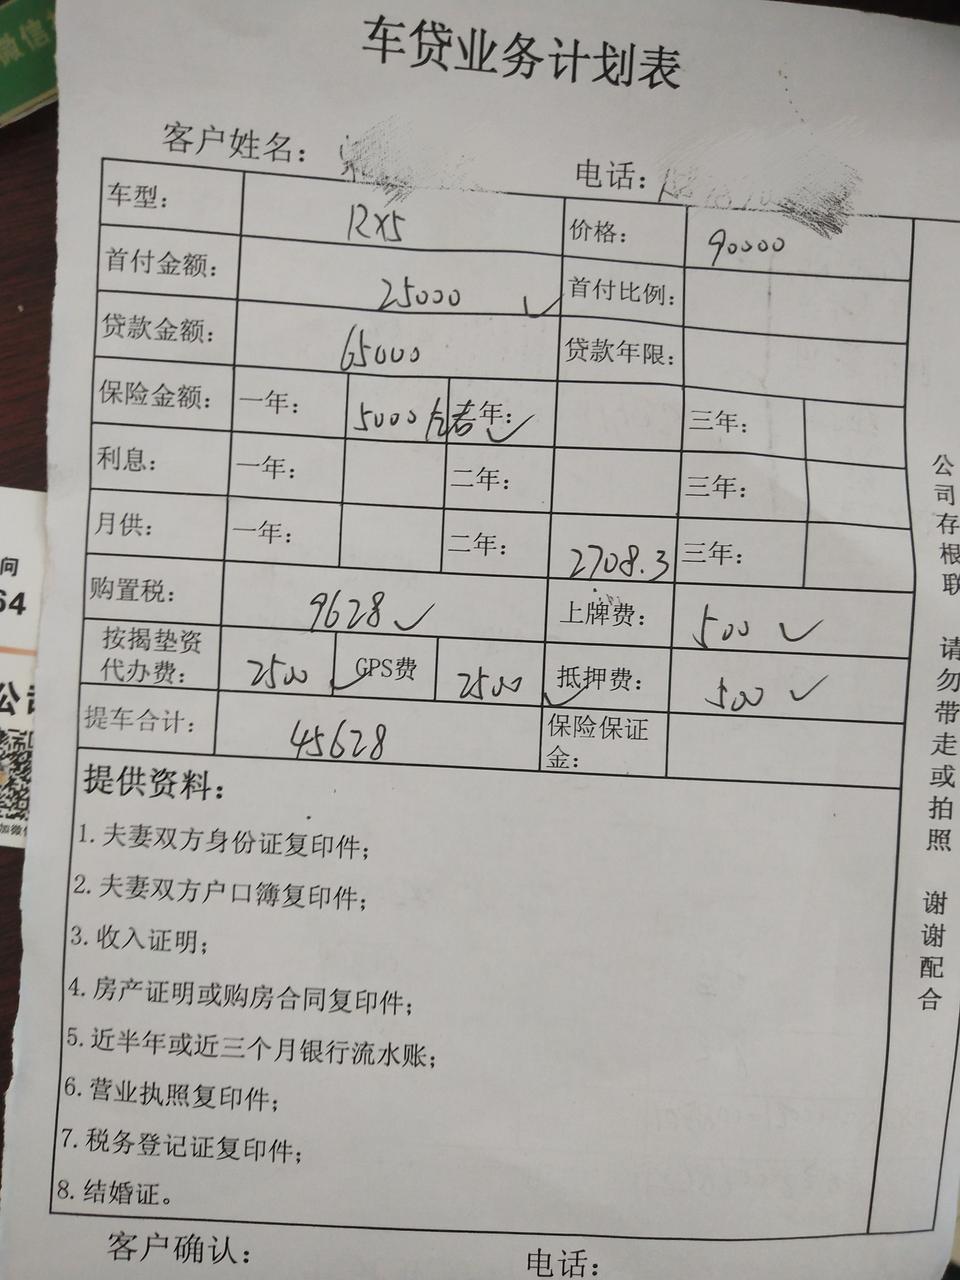 微信
车贷业务计划表
客户姓名： 电话：
车型： RX5 价格： 90000
首付金额： 25000 ✓ 首付比例：
贷款金额： 65000 贷款年限：
保险金额： 一年： 5000左右 二年： ✓ 三年：
利息： 一年： 二年： 三年：
月供： 一年： 二年： 2708.3 三年：
购置税： 9628 ✓ 上牌费： 500 ✓
按揭垫资
代办费： 2500 ✓ GPS费 2500 ✓ 抵押费： 500 ✓
提车合计： 45628 保险保证
金：
提供资料：
1.夫妻双方身份证复印件；
2.夫妻双方户口簿复印件；
3.收入证明；
4.房产证明或购房合同复印件；
5.近半年或近三个月银行流水账；
6.营业执照复印件；
7.税务登记证复印件；
8.结婚证。
客户确认： 电话：
公司存根联 请勿带走或拍照 谢谢配合
问
64
公司
加微信